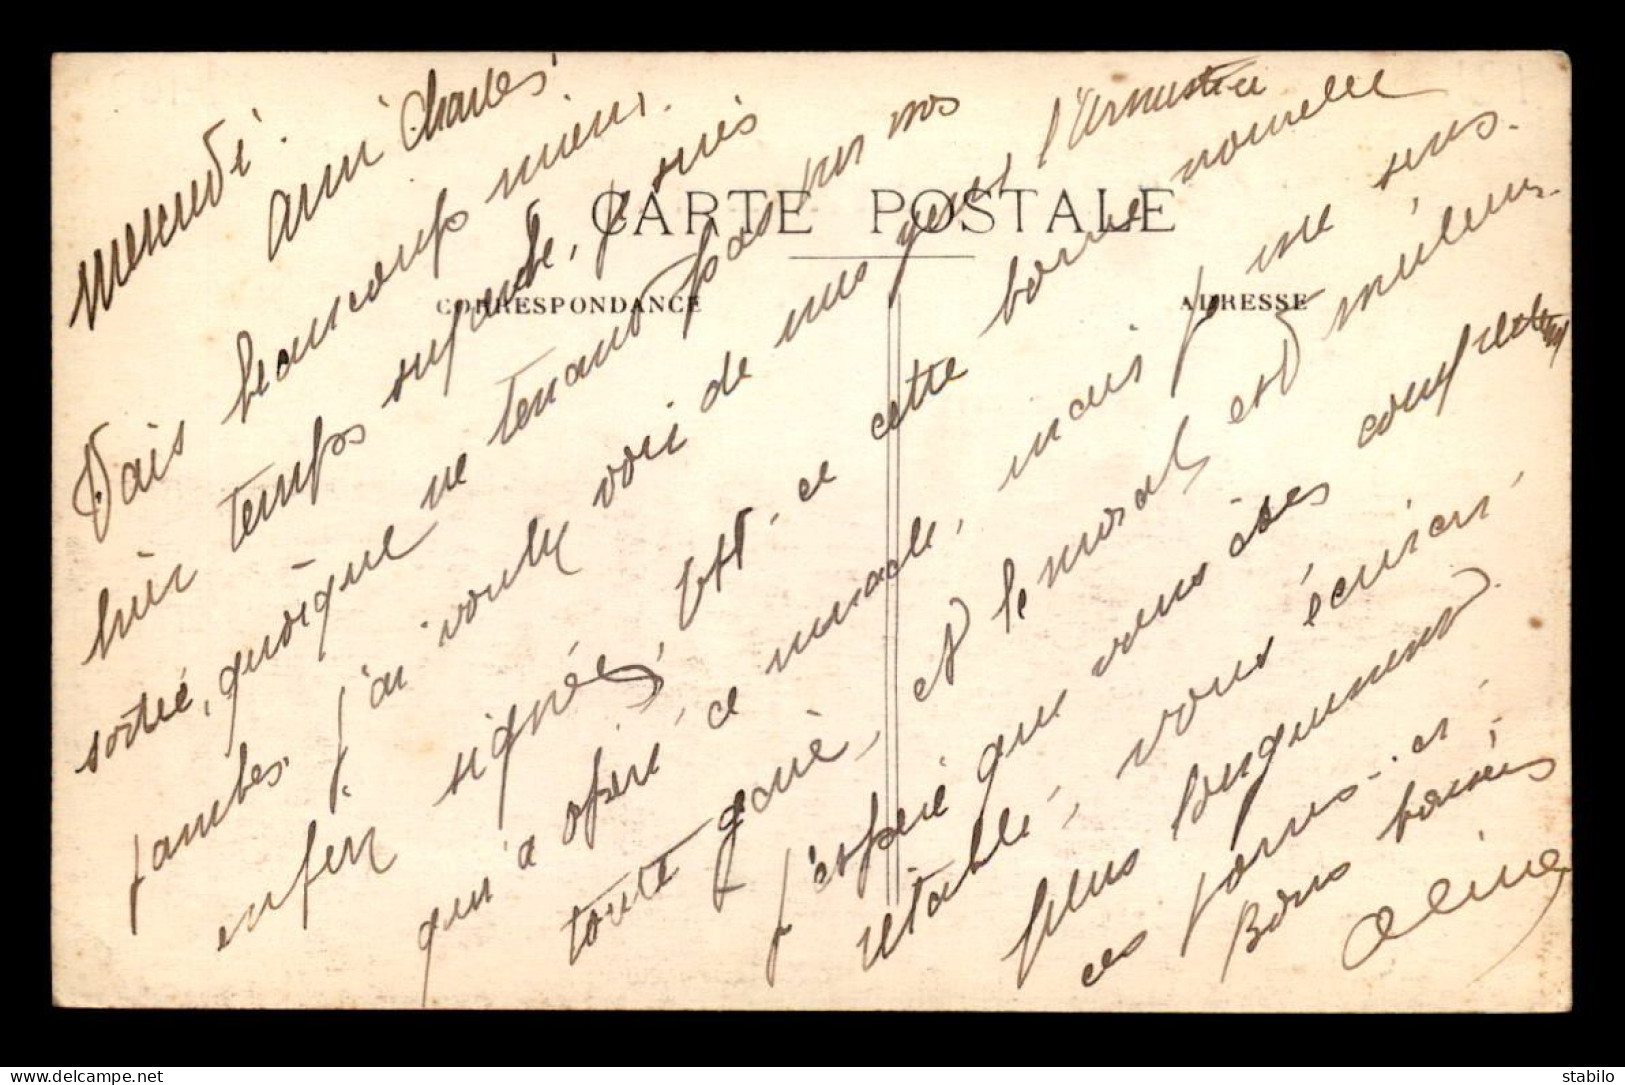 mercredi.
ami Charles,
Vais beaucoup mieux.
hier temps superbe, je suis
sortie, quoique ne tenant pas sur mes
jambes. j'ai voulu voir de mes yeux l'Armistice
enfin signée, Est-ce cette bonne nouvelle
qui a opéré ce miracle, mais je me sens
toute gaie, et le moral est meilleur.
J'espère que vous êtes complètem
rétabli, vous écrirai
plus longuement
ces jours-ci,
Bons baisers,
Aline
CARTE POSTALE
CORRESPONDANCE
ADRESSE
www.delcampe.net
stabilo